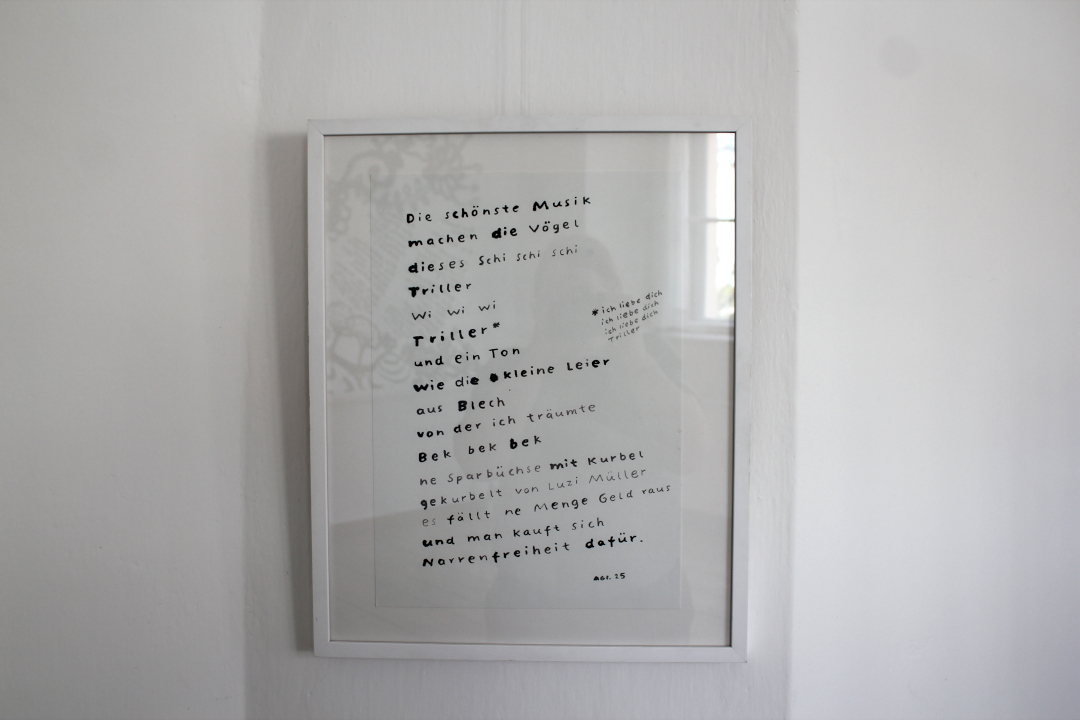 Die schönste Musik
machen die Vögel
dieses Schi schi schi
Triller
Wi wi wi
Triller*
und ein Ton
wie die kleine Leier
aus Blech
von der ich träumte
Bek bek bek
ne Sparbüchse mit Kurbel
gekurbelt von Luzi Müller
es fällt ne Menge Geld raus
und man kauft sich
Narrenfreiheit dafür.
*ich liebe dich
ich liebe dich
ich liebe dich
Triller